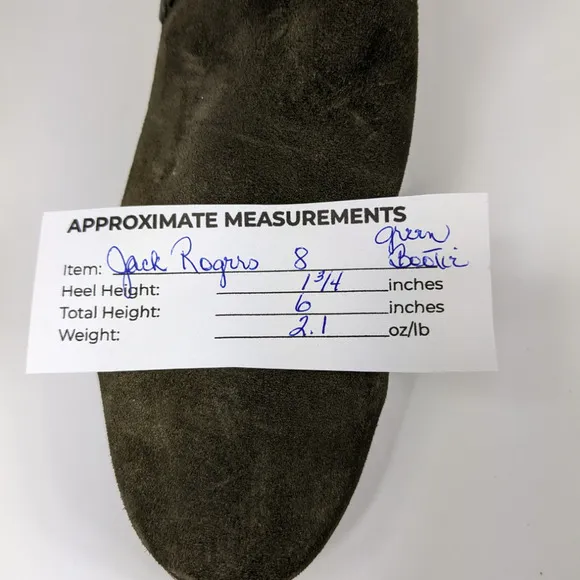 APPROXIMATE MEASUREMENTS
Item: Jack Rogers 8 green Bootie
Heel Height: 1 3/4 inches
Total Height: 6 inches
Weight: 2.1 oz/lb